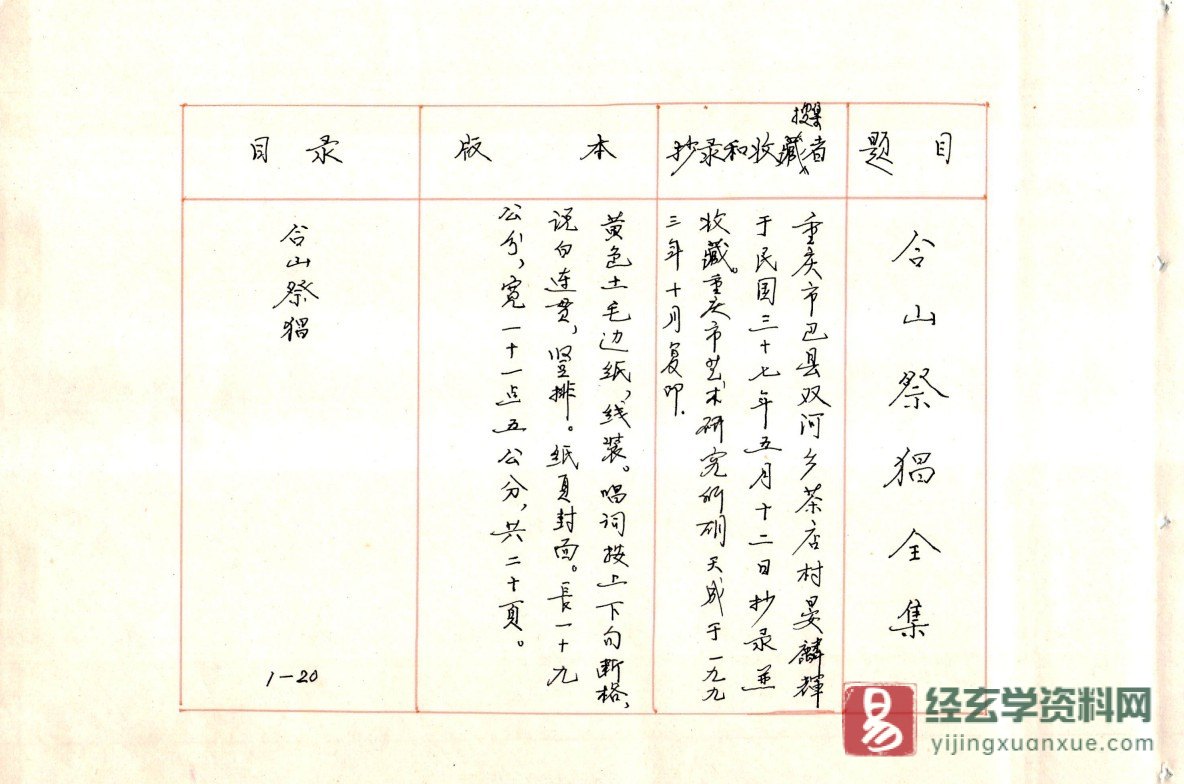 题目
合山祭猖全集
搜集
抄录和收藏者
重庆市巴县双河乡茶店村晏麟辉
于民国三十七年五月十二日抄录並
收藏。重庆市艺术研究所胡天成于一九九
三年十月复印.
版本
黄色土毛边纸,线装。唱词按上下句断格,
说白连贯,竖排。纸页封面。長一十九
公分,宽一十一点五公分,共二十頁。
目录
合山祭猖
1-20
易
经玄学资料网
yijingxuanxue.com